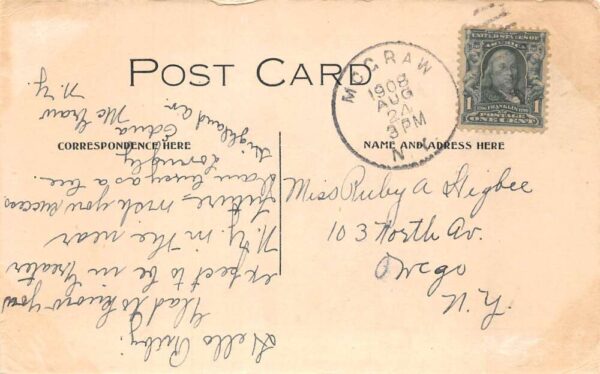 POST CARD
CORRESPONDENCE HERE
NAME AND ADDRESS HERE
McGRAW
1908
AUG
24
3 PM
N.Y.
UNITED STATES OF
AMERICA
FRANKLIN
1 1
POSTAGE
ONE CENT
Miss Ruby A Higbee
103 North Av.
Owego
N.Y.
Hello Ruby.
Glad to know you
expect to be in Greater
N.Y. in the near
future, wish you success
I am busy as a bee.
Lovingly
Edna
Highland Av.
Mc Graw
N.Y.